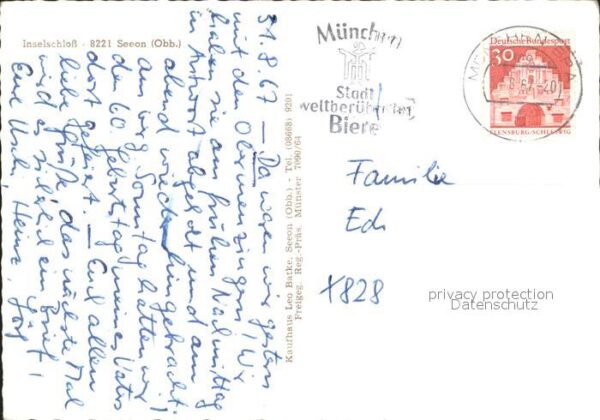 Inselschloß - 8221 Seeon (Obb.)
31.8.67 – Da waren wir gestern
mit den Obermenzingern. Wir
haben sie am frühen Nachmittag
in abgeholt und am
abend wieder hingebracht.
am Sonntag hatten wir
den 60. Geburtstag meines Vaters
dort gefeiert. – Euch allen
liebe Grüße, das nächste Mal
wird es ein Brief!
Eure Uschi, Heinz, Jörg
Kaufhaus Leo Batke, Seeon (Obb.) - Tel. (08668) 9201
Freigeg. Reg.-Präs. Münster 7090/64
München
Stadt
weltberühmter
Biere
Deutsche Bundespost
30
FLENSBURG-SCHLESWIG
MÜNCHEN
Familie
Ed
+828
privacy protection
Datenschutz